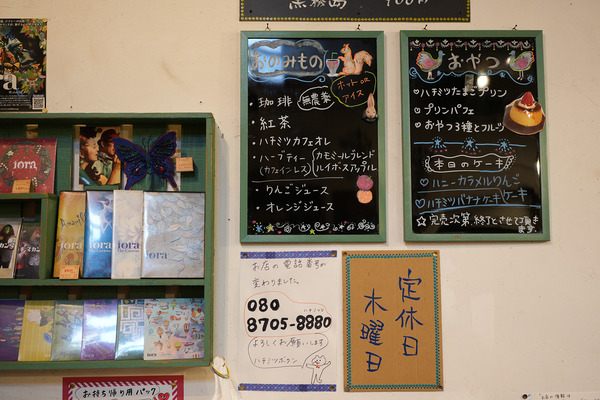 黒糖 400円
おのみもの
ホット or
アイス
・珈琲 無農薬
・紅茶
・ハチミツカフェオレ
・ハーブティー
(カフェインレス)
カモミールブレンド
ルイボスアップル
・りんごジュース
・オレンジジュース
おやつ
♡ハチミツたまごプリン
♡プリンパフェ
♡おやつ3種とフルーツ
本日のケーキ
♡ハニーカラメルりんごケーキ
♡ハチミツバナナケーキ
☆完売次第、終了とさせて頂きます。
iora
iora
iora
iora
iora
iora
お店の電話番号が
変わりました。
080
8705-8880
よろしくお願いします
ハチミツボタン
定休日
木曜日
お持ち帰り用パック